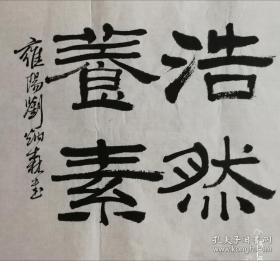 浩然
養素
雍陽劉炳森書
孔夫子旧书网